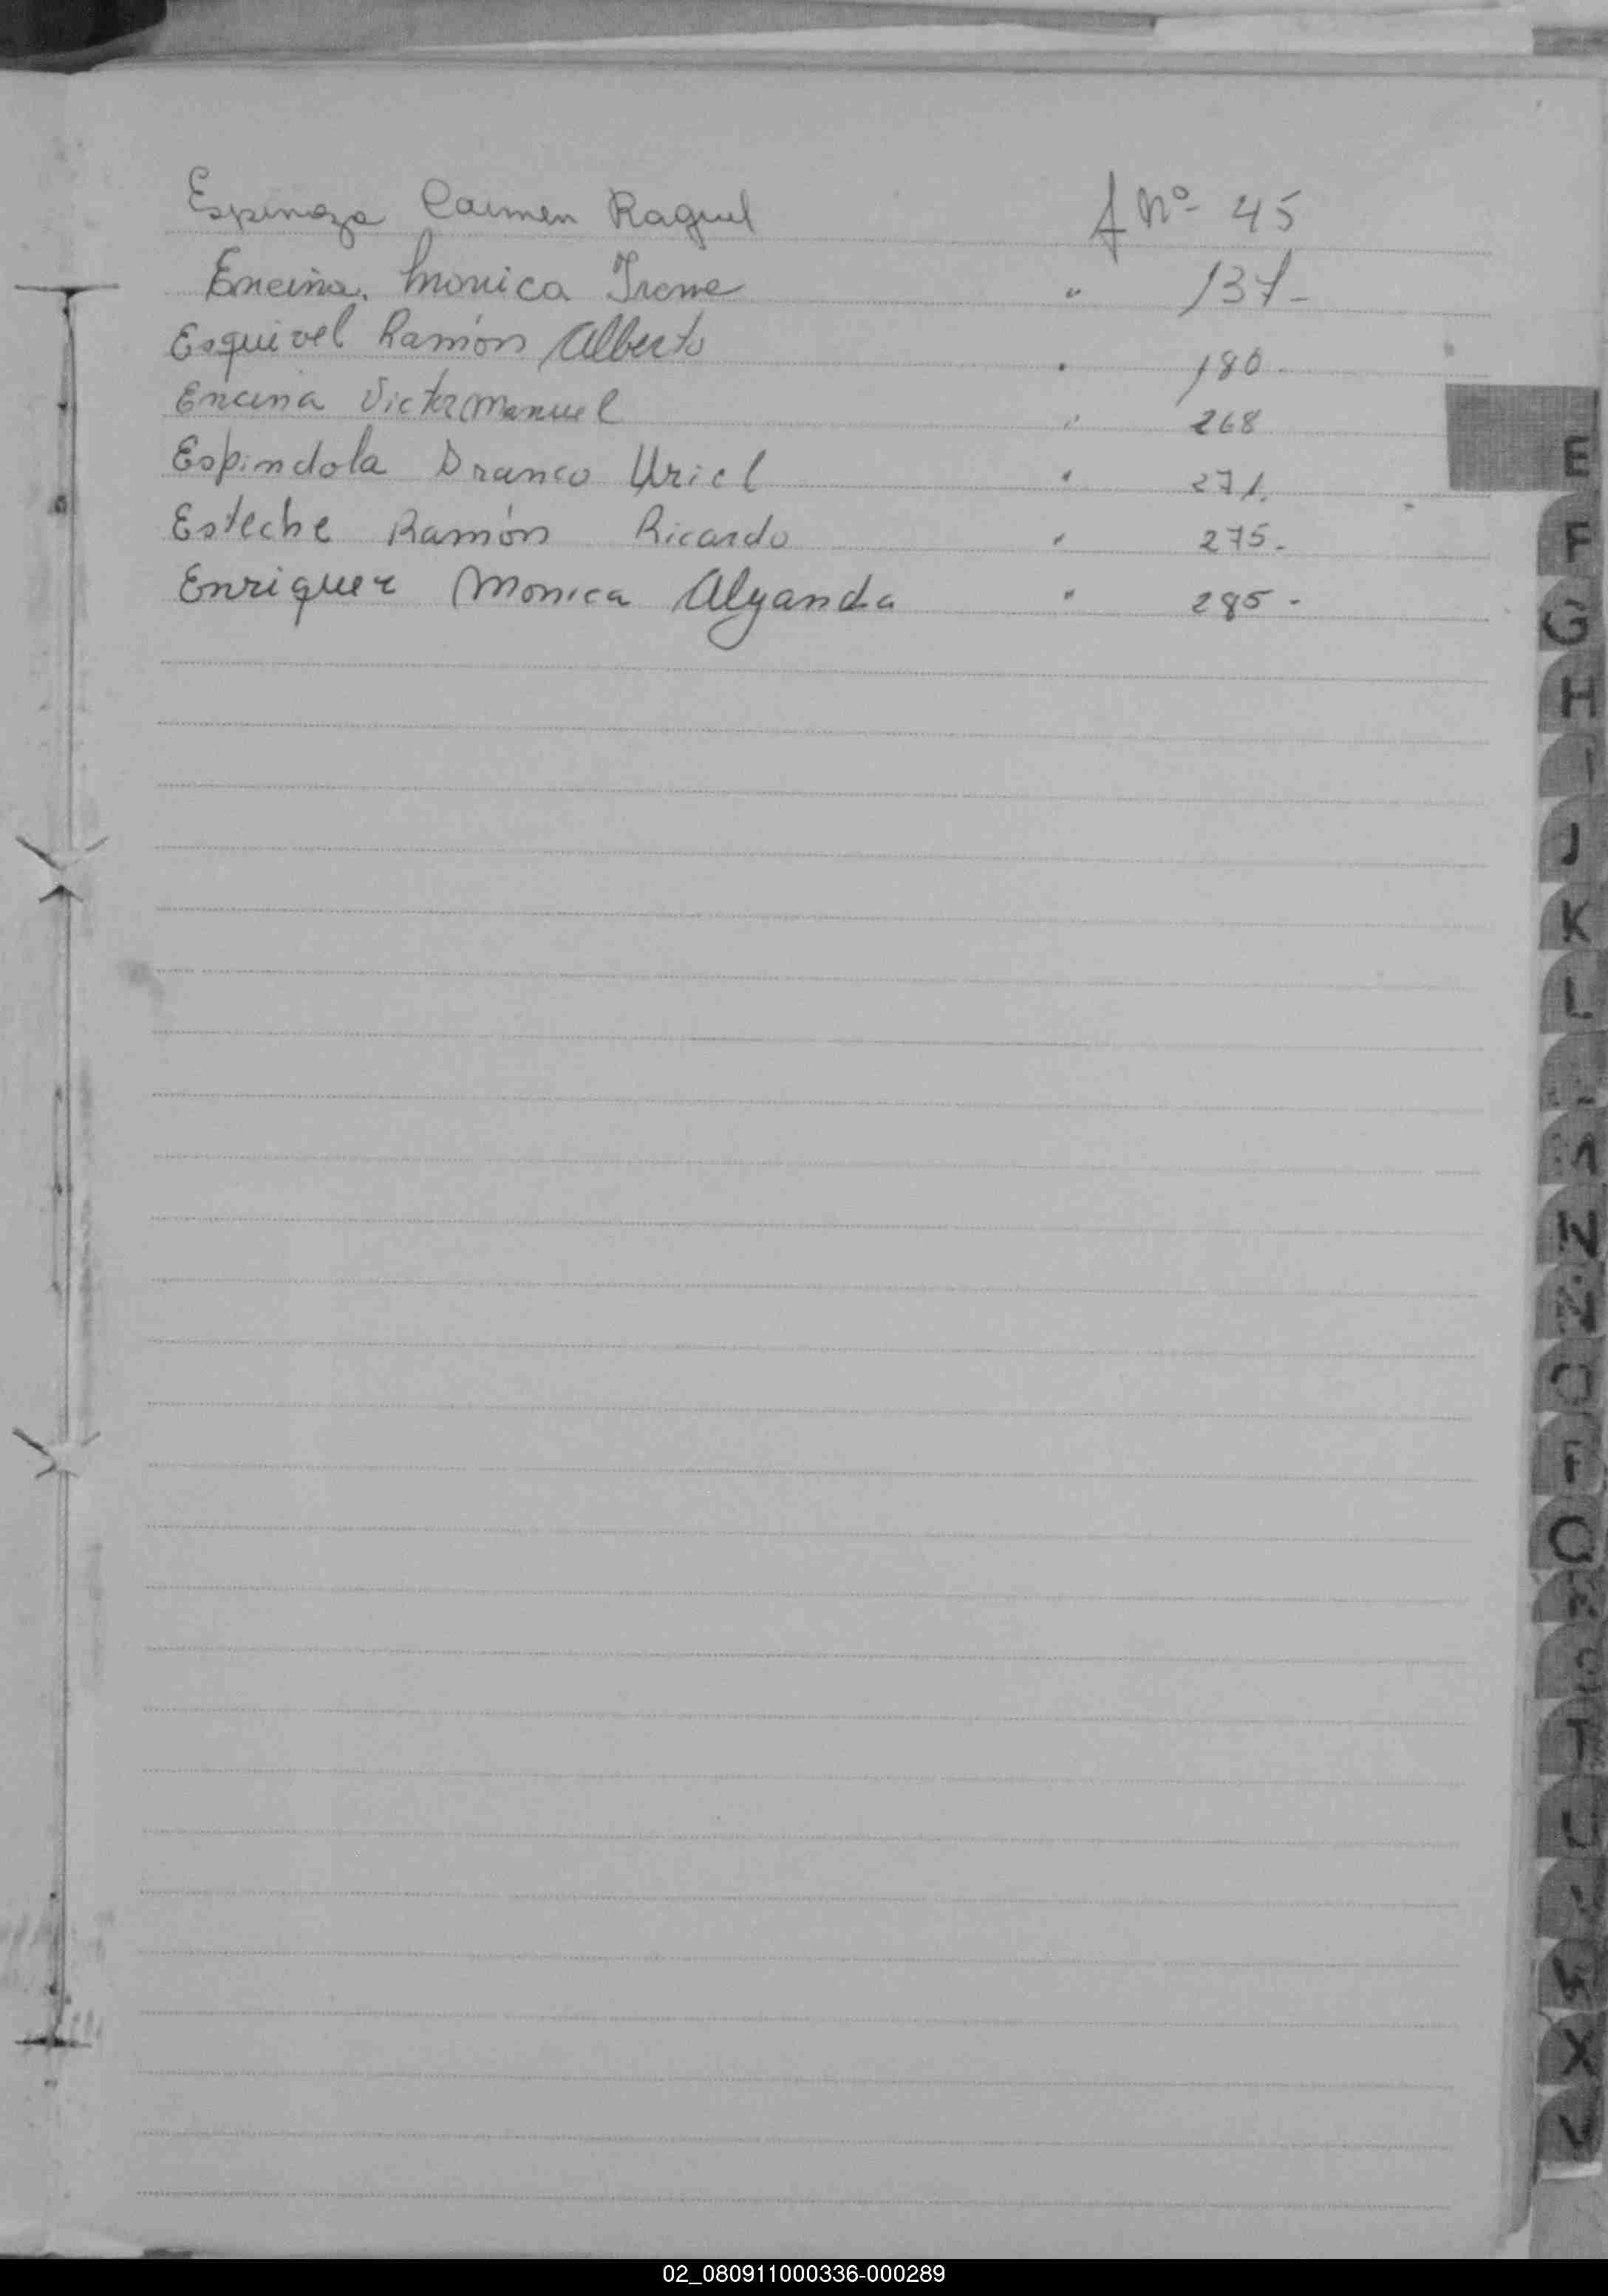 Espinoza Carmen Raquel f Nº 45
Encina. Monica Irene " 137-
Esquivel Ramón Alberto " 180-
Encina Victor Manuel " 268
Espindola Dranco Uriel " 271.
Esteche Ramón Ricardo " 275-
Enriquez Monica Alejandra " 285-
E
F
G
H
I
J
K
L
N
O
Q
T
U
X
02_080911000336-000289